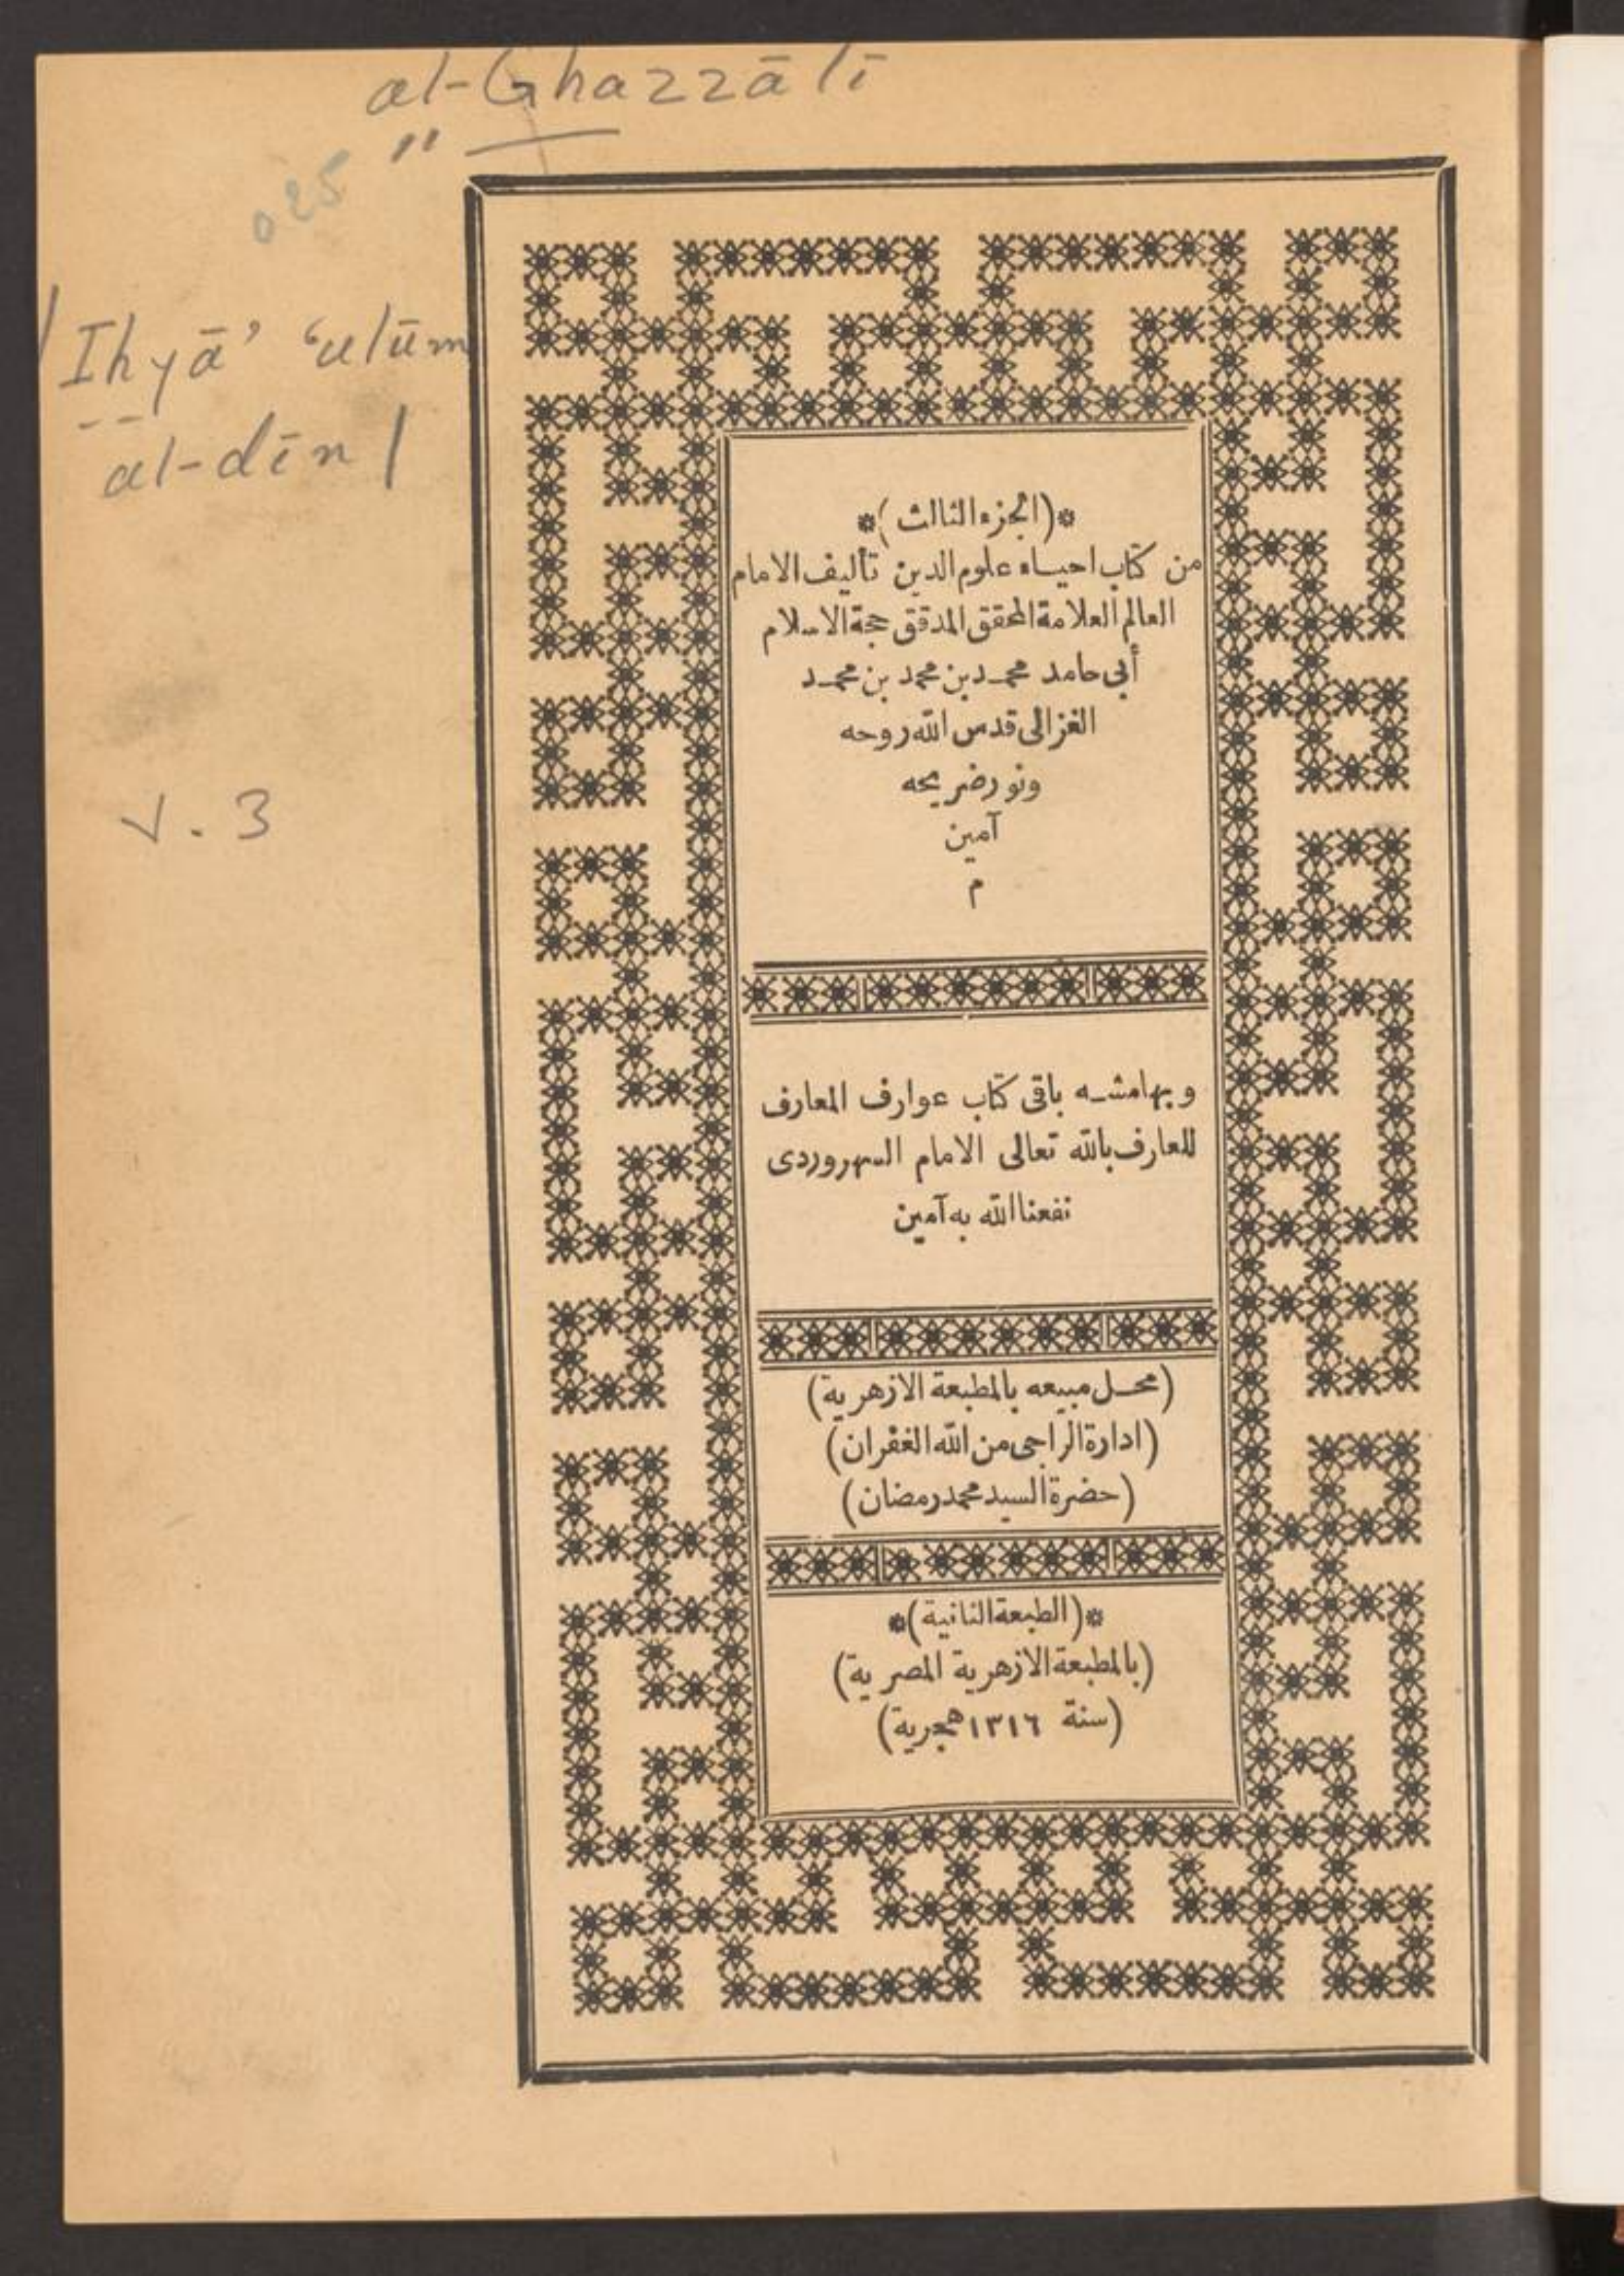 al-Ghazzālī
"
025
/Ihyā' 'ulūm
al-dīn/
v. 3
*(الجزء الثالث)*
من كتاب احياء علوم الدين تأليف الامام
العالم العلامة المحقق المدقق حجة الاسلام
أبى حامد محمد بن محمد بن محمد
الغزالى قدس الله روحه
ونور ضريحه
آمين
م
وبهامشه باقى كتاب عوارف المعارف
للعارف بالله تعالى الامام السهروردى
نفعنا الله به آمين
(محل مبيعه بالمطبعة الازهرية)
(ادارة الراجى من الله الغفران)
(حضرة السيد محمد رمضان)
*(الطبعة الثانية)*
(بالمطبعة الازهرية المصرية)
(سنة ١٣١٦ هجرية)